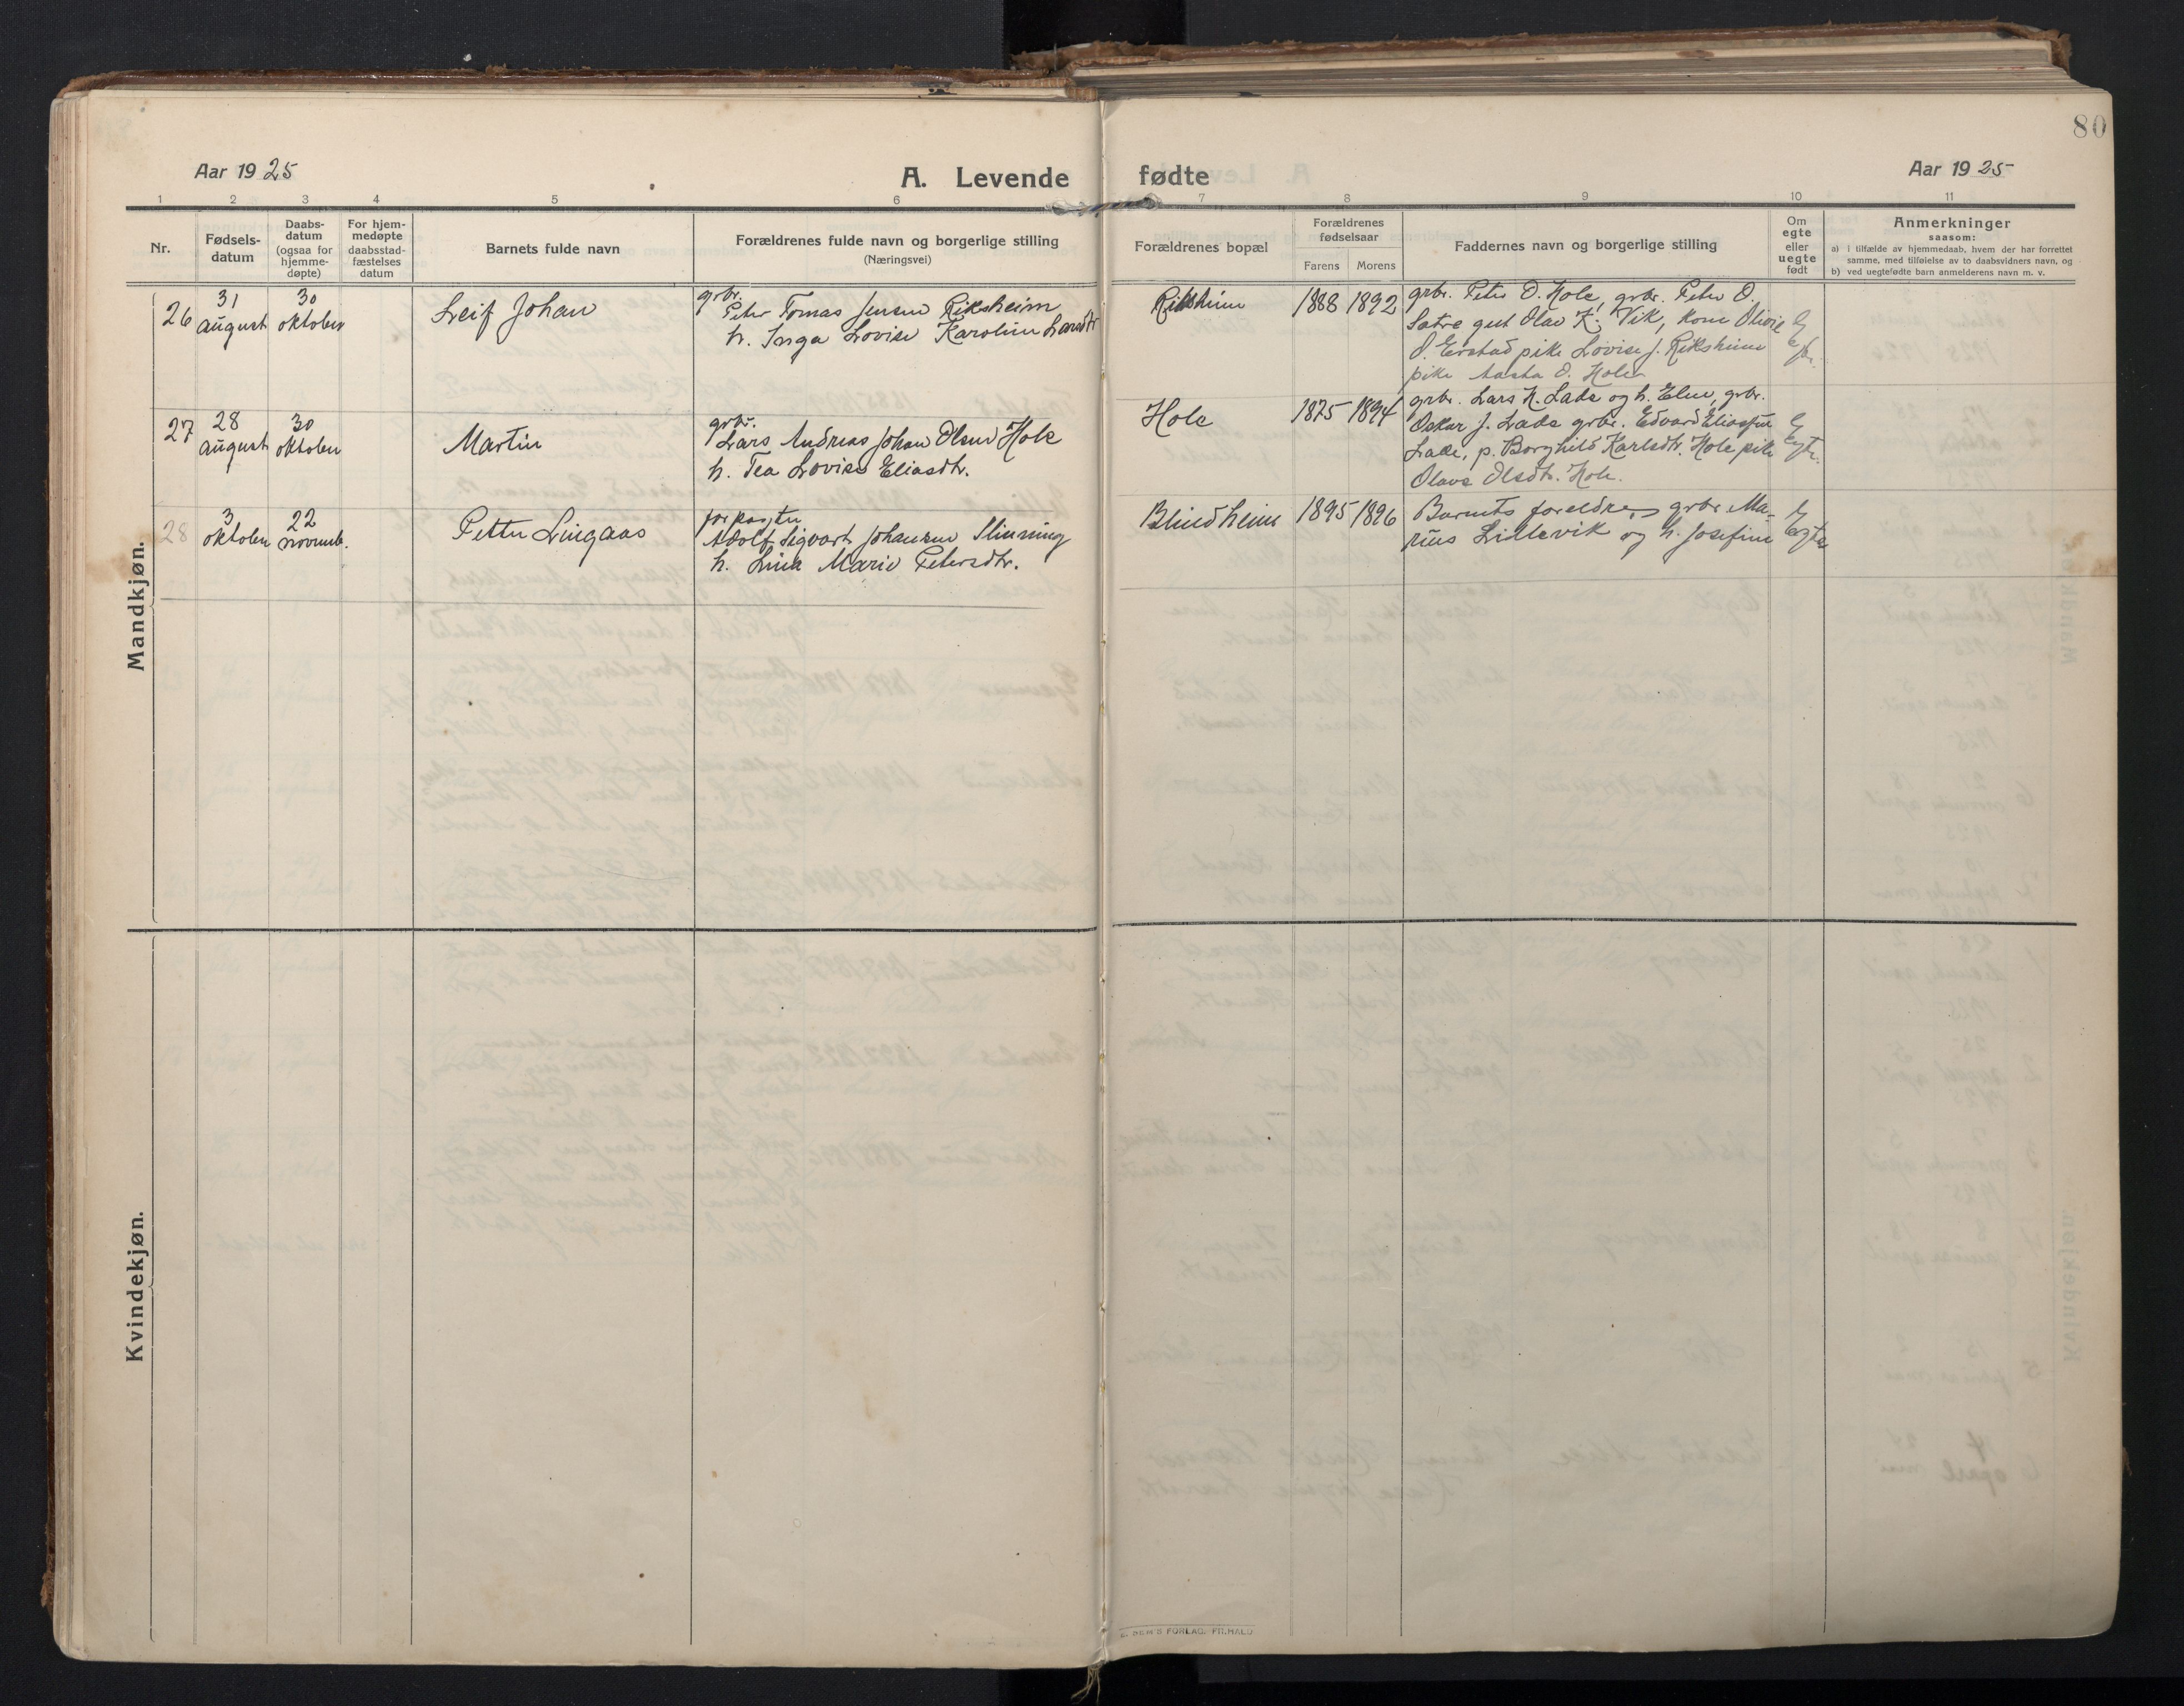 80
Aar 1925
A. Levende fødte
Aar 1925
1 2 3 4 5 6 7 8 9 10 11
Nr.
Fødsels-
datum
Daabs-
datum
(ogsaa for
hjemme-
døpte)
For hjem-
medøpte
daabsstad-
fæstelses
datum
Barnets fulde navn
Forældrenes fulde navn og borgerlige stilling
(Næringsvei)
Forældrenes bopæl
Forældrenes
fødselsaar
Farens Morens
Faddernes navn og borgerlige stilling
Om
egte
eller
uegte
født
Anmerkninger
saasom:
a) i tilfælde av hjemmedaab, hvem der har forrettet
samme, med tilføielse av to daabsvidners navn, og
b) ved uegtefødte barn anmelderens navn m. v.
Mandkjøn.
26
31
august
30
oktober
Leif Johan
grbr.
Peter Tomas Jensen Riksheim
h. Inga Lovise Karoline Larsdtr
Riksheim
1888 1892
grbr. Peter O. Hole, grbr. Peter O.
Sætre gut Olav K. Vik, kone Olivie
O. Erstad pike Lovise J. Riksheim
pike Aasta O. Hole
27
28
august
30
oktober
Martin
grbr.
Lars Andreas Johan Olsen Hole
h. Tea Lovise Eliasdtr.
Hole
1875 1894
grbr. Lars N. Lade og h. Eline, grbr.
Oskar J. Lade grbr. Edvard Eliassen
Lade, p. Borghild Karlsdtr. Hole pike
Olave Olsdtr. Hole.
28
3
oktober
22
novemb.
Petter Lingaas
forpagter
Adolf Sigvart Johansen Slinning
h. Lina Marie Petersdtr.
Blindheim
1895 1896
Barnets foreldre, grbr. Ma-
rius Lillevik og h. Josefine
egte
Kvindekjøn.